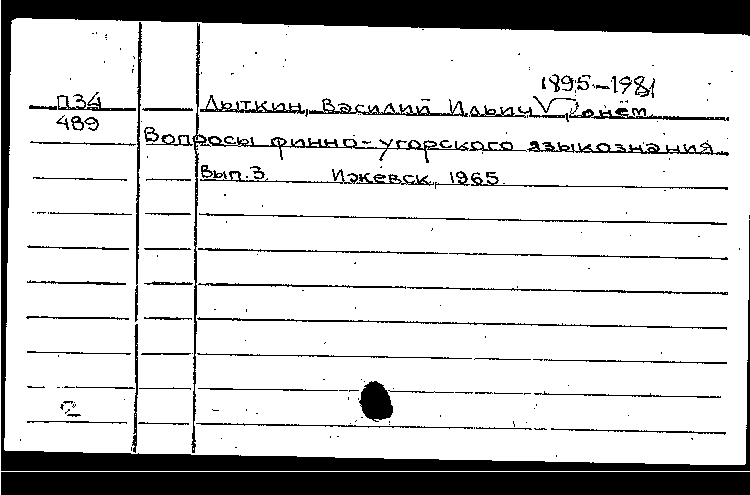 1895-1981
П34 Лыткин, Василий Ильич, о нём.
489
Вопросы финно-угорского языкознания
Вып. 3. Ижевск, 1965.
2